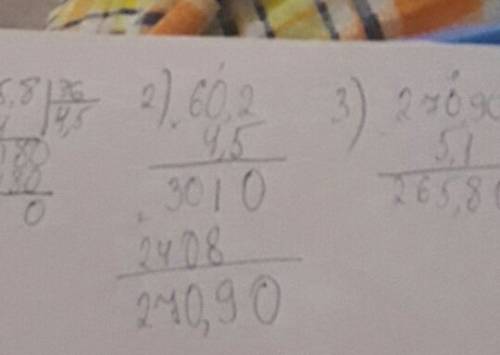 5,8 | 36
4,5
180
180
0
2) 60,2
4,5
3010
2408
270,90
3) 270,90
5,1
265,80